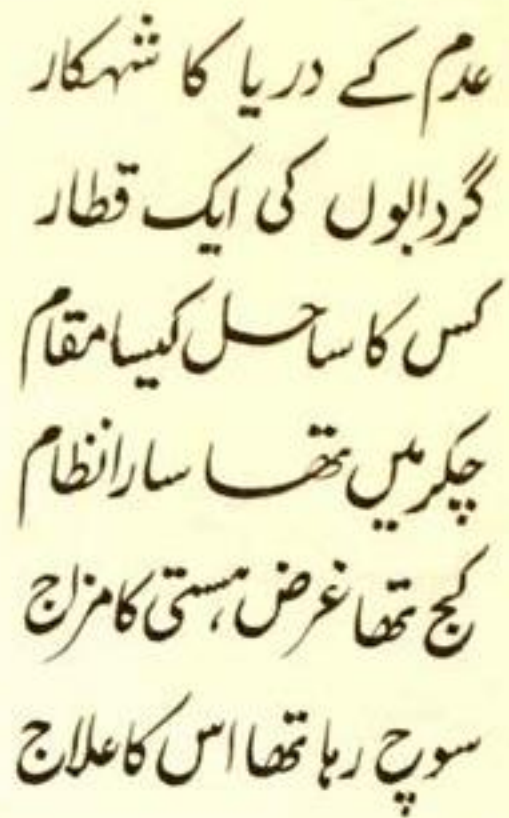 عدم کے دریا کا شہکار
گردابوں کی ایک قطار
کس کا ساحل کیسا مقام
چکر میں تھا سارا نظام
کج تھا غرض ہستی کا مزاج
سوچ رہا تھا اس کا علاج